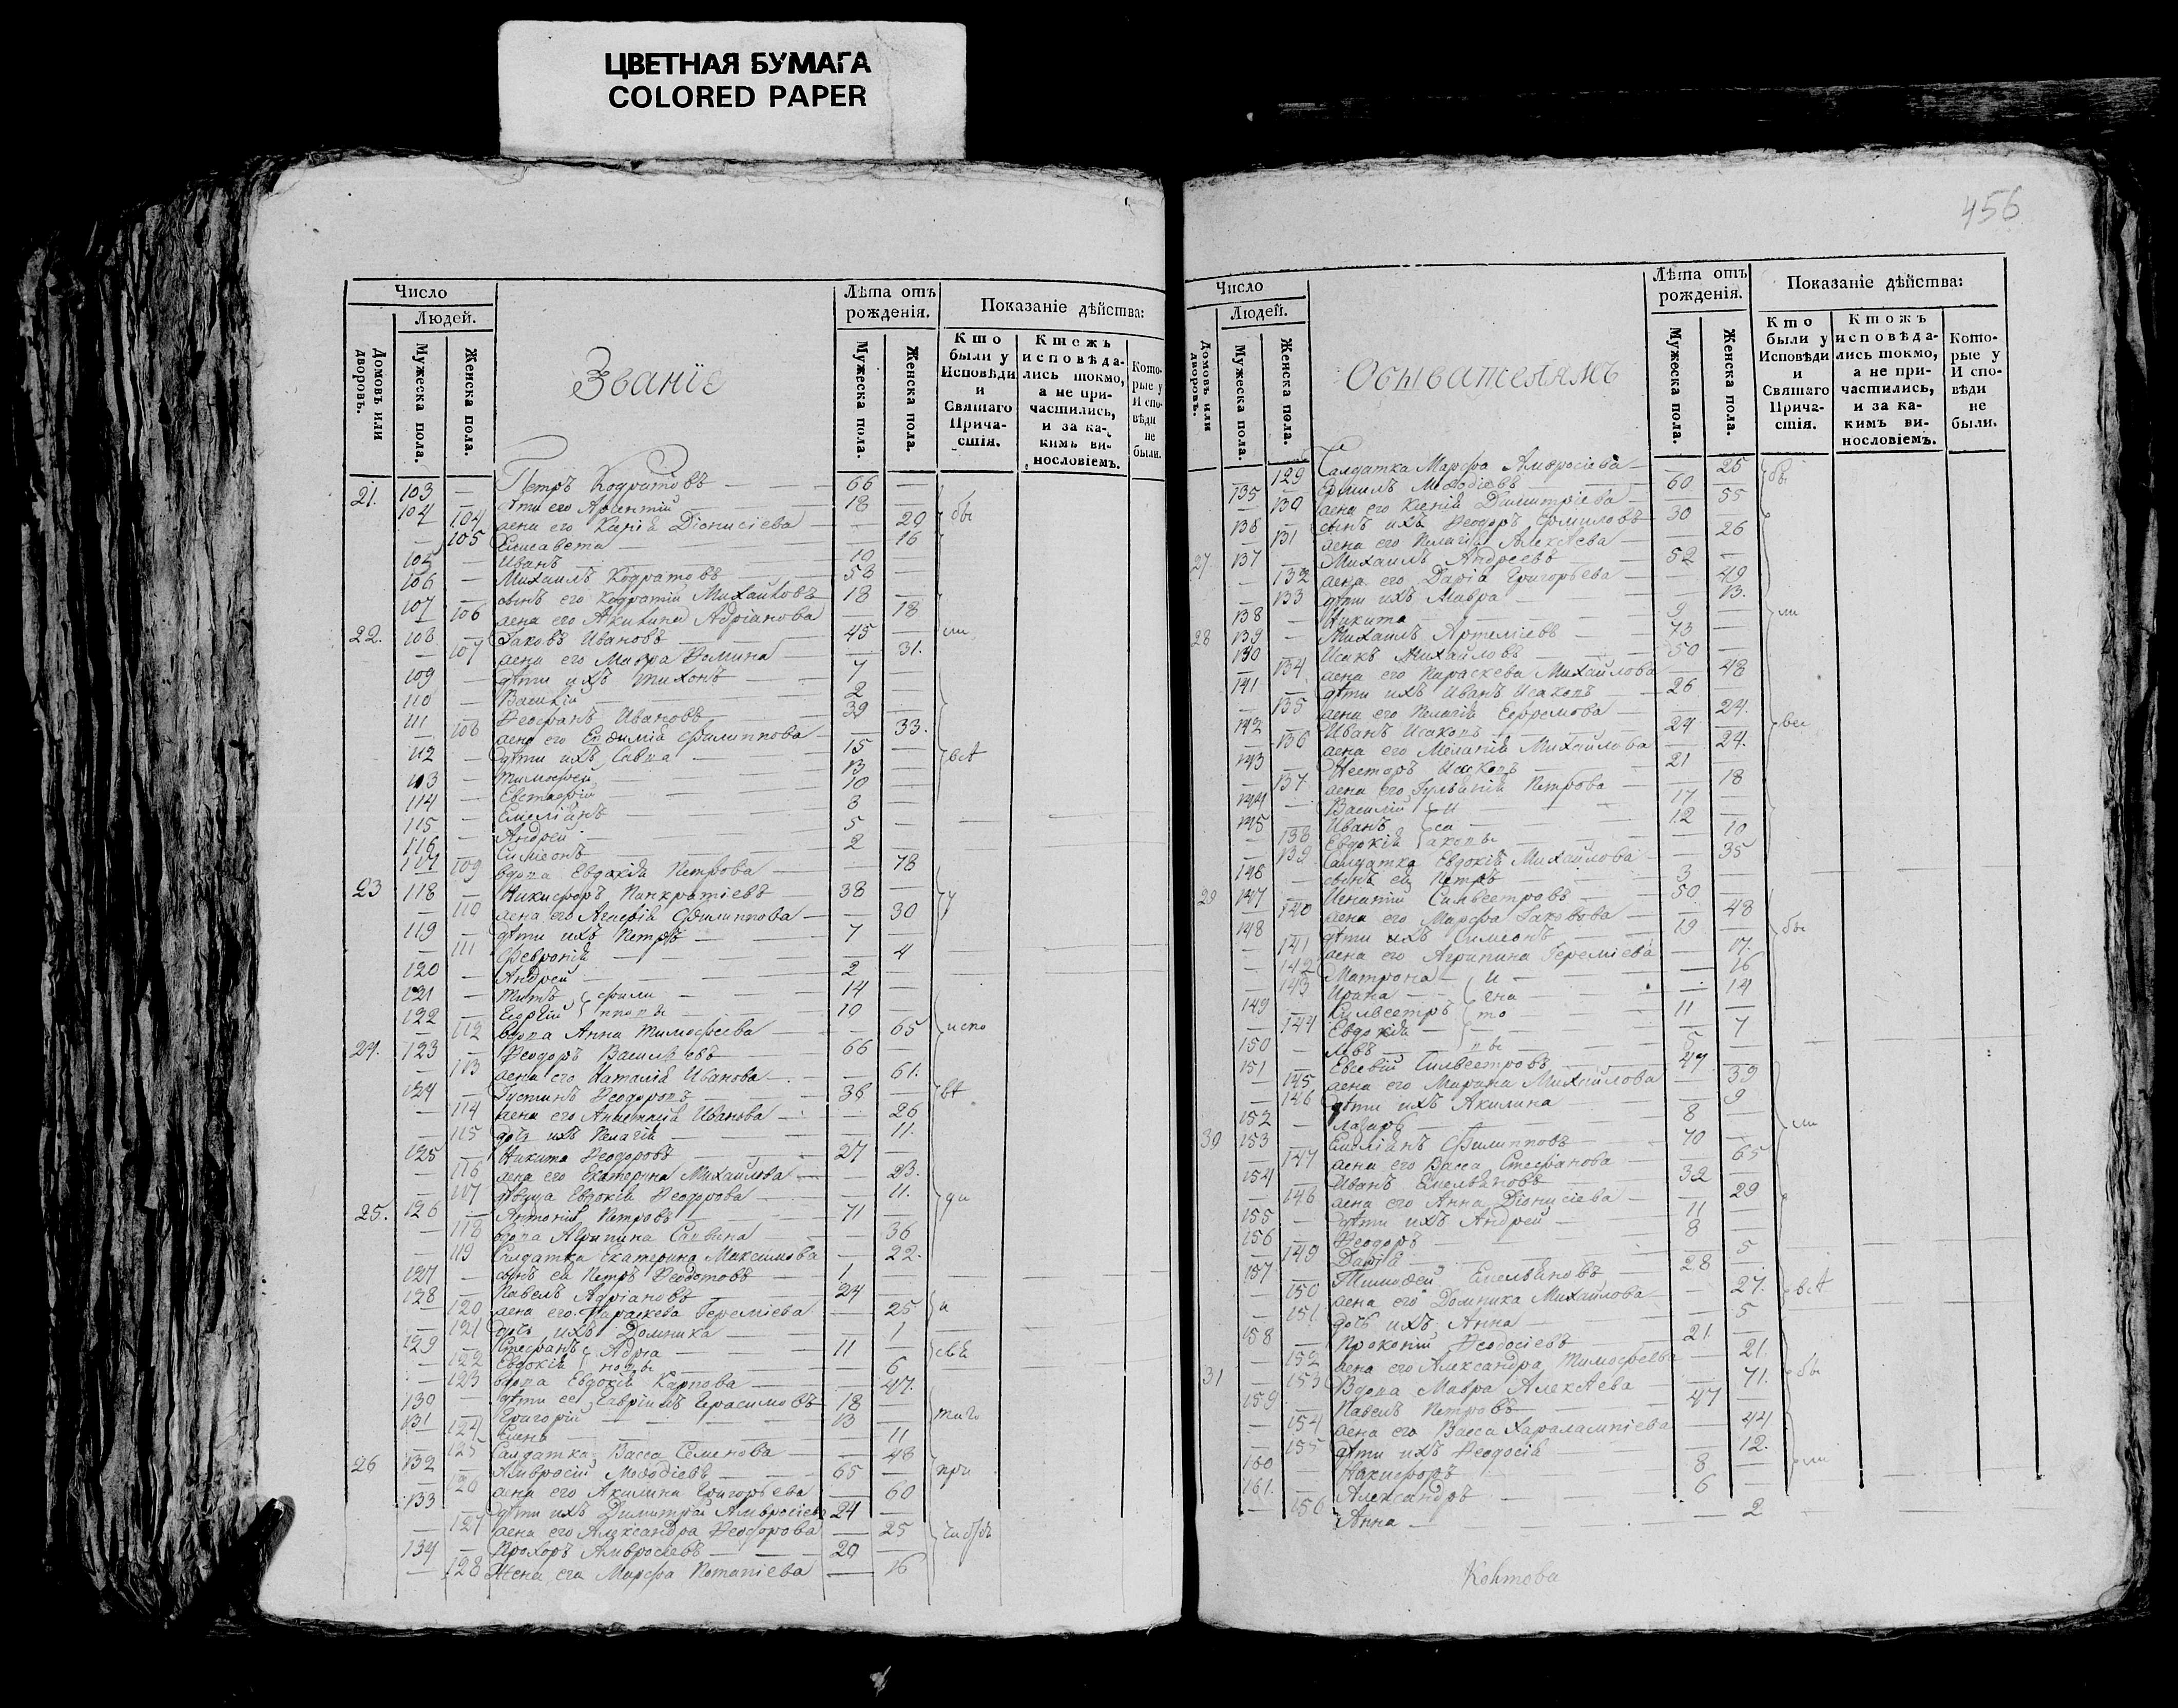 ЦВЕТНАЯ БУМАГА
COLORED PAPER
Число
Людей.
Домовъ или дворовъ.
Мужеска пола.
Женска пола.
Званїе
Лѣта отъ рожденія.
Мужеска пола.
Женска пола.
Показаніе дѣйства:
Кто были у Исповѣди и Святаго Причастія.
Ктожъ исповѣдались токмо, а не причастились, и за какимъ винословіемъ.
Которые у Исповѣди не были.
21. 103 — Петръ Кодратовъ — 66 —
104 — дѣти его — 18 —
— 104 жена его Діонисіева — — 20
— 105 Елисавета — — 16
105 — Иванъ — 10 —
106 — Михаилъ Кодратовъ — 58 —
107 — сынъ его Кодратій Михайловъ 18 —
— 106 жена его Акилина Адріанова — 18
22. 108 — Іаковъ Ивановъ — 45 —
— 107 жена его Мавра Фомина — — 31.
109 — дѣти ихъ Тихонъ — 7 —
110 — Василій — 2 —
111 — Стефанъ Ивановъ — 39 —
— 108 жена его Евдокія Филиппова — 33.
112 — дѣти ихъ Савва — 15 —
113 — Тимофей — 13 —
114 — Евстафій — 10 —
115 — Емеліанъ — 8 —
116 — Андрей — 5 —
117 — Симеонъ — 2 —
— 109 вдова Евдокія Петрова — — 78
23 118 — Никифоръ Панкратіевъ 38 —
— 110 жена его Филиппова — — 30
119 — дѣти ихъ Петръ — 7 —
— 111 Февронія — — 4
120 — Андрей — 2 —
121 — Титъ фили — 14 —
122 — Георгій пповы — 10 —
— 112 вдова Анна Тимофеева — — 65
24. 123 — Феодоръ Васильевъ — 66 —
— 113 жена его Наталія Иванова — — 61.
124 — Іустинъ Феодоровъ — 36 —
— 114 жена его Анастасія Иванова — — 26
— 115 дочь ихъ Пелагія — — 11.
125 — Никита Феодоровъ — 27 —
— 116 жена его Екатерина Михайлова — — 23.
— 117 дѣвица Евдокія Феодорова — — 11.
25. 126 — Антоній Петровъ — 71 —
— 118 вдова Агрипина Саввина — 36
— 119 Салдатка Екатерина Максимова — 22.
127 — сынъ ея Петръ — 1 —
128 — Павелъ Адріановъ — 24 —
— 120 жена его Параскева Іереміева — 25
— 121 дочь ихъ Домника — — 1
129 — Стефанъ Адріа — 11 —
— 122 Евдокія новы — — 6
— 123 вдова Евдокія Карпова — — 47.
130 — дѣти ее Гавріилъ Герасимовъ 18 —
131 — Григорій — 13 —
— 124 Елена — — 11
— 125 Салдатка Васса Семенова — 48
26 132 — Амвросій Меѳодіевъ — 65 —
— 126 жена его Акилина Григорьева — 60
133 — дѣти ихъ Димитрій Амвросіевъ 24 —
— 127 жена его Александра Феодорова — 25
134 — Прохоръ Амвросіевъ — 20 —
— 128 Жена его Марфа Потапіева — 16
456
Число
Людей.
Домовъ или дворовъ.
Мужеска пола.
Женска пола.
Обывателямъ
Лѣта отъ рожденія.
Мужеска пола.
Женска пола.
Показаніе дѣйства:
Кто были у Исповѣди и Святаго Причастія.
Ктожъ исповѣдались токмо, а не причастились, и за какимъ винословіемъ.
Которые у Исповѣди не были.
— 129 Салдатка Марфа Амвросіева — 25
135 — Ермилъ Меѳодіевъ — 60 —
— 130 жена его Ксенія Димитріева — 55
136 — сынъ ихъ Феодоръ Ермиловъ 30 —
— 131 жена его Пелагія Алексѣева — 26
27 137 — Михаилъ Андреевъ — 52 —
— 132 жена его Дарія Григорьева — 49
— 133 дѣти ихъ Мавра — — 13.
138 — Никита — 9 —
28 139 — Михаилъ Артеміевъ — 73 —
Исакъ Михайловъ — 50 —
— 134 жена его Параскева Михайлова — 48
141 — дѣти ихъ Иванъ Исаковъ — 26 —
— 135 жена его Пелагія Ефремова — 24.
142 — Иванъ Исаковъ — 24 —
— 136 жена его Меланія Михайлова — 24.
143 — Несторъ Исаковъ — 21 —
— 137 жена его Іуліанія Петрова — 18
144 — Василій И — 17 —
145 — Иванъ са — 12 —
— 138 Евдокія аковы — — 10
— 139 Салдатка Евдокія Михайлова — 35
146 — сынъ ея Петръ — 3 —
29 147 — Игнатій Сильвестровъ — 50 —
— 140 жена его Марфа Іаковова — 48
148 — дѣти ихъ Симеонъ — 19 —
— 141 жена его Агрипина Іереміева — 17.
— 142 Матрона — И — 16
— 143 Ирина — гна — 14
149 — Сильвестръ то — 11 —
— 144 Евдокія — — 7
150 — Левъ — вы — 5 —
151 — Евсевій Сильвестровъ — 47 —
— 145 жена его Марина Михайлова — 39
— 146 дѣти ихъ Акилина — 9
152 — Лазарь — 8 —
30 153 — Емеліанъ Филипповъ — 70 —
— 147 жена его Васса Стефанова — 65
154 — Иванъ Емельяновъ — 32 —
— 148 жена его Анна Діонисіева — 29
155 — дѣти ихъ Андрей — 11 —
156 — Феодоръ — 8 —
— 149 Дарія — — 5
157 — Тимофей Емельяновъ — 28 —
— 150 жена его Домника Михайлова — 27.
— 151 дочь ихъ Анна — — 5
158 — Прокопій Феодосіевъ — 21. —
— 152 жена его Александра Тимофеева — 21.
31 — 153 Вдова Мавра Алексѣева — 71.
159 — Павелъ Петровъ — 47 —
— 154 жена его Васса Харалампіева — 44
— 155 дѣти ихъ Феодосія — 12.
160 — Никифоръ — 8 —
161. — Александръ — 6 —
— 156 Анна — — 2